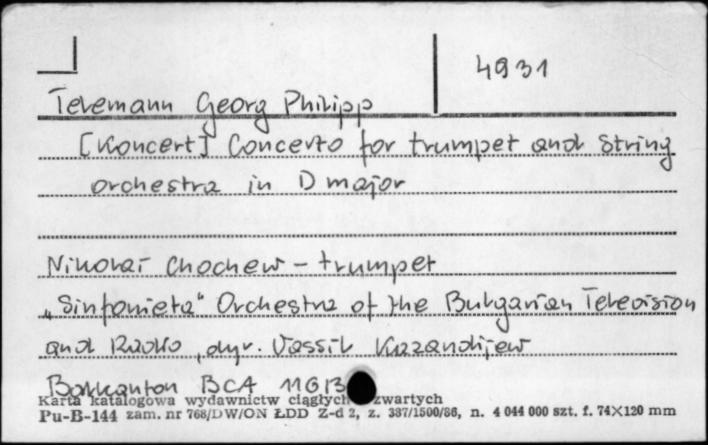 4931
Telemann Georg Philipp
[Koncert] Concerto for trumpet and string
orchestra in D major
Nikolai Chochew – trumpet
„Sinfonieta" Orchestra of the Bulgarian Television
and Radio, dyr. Vassil Kazandijew
Balkanton BCA 1161
Karta katalogowa wydawnictw ciągłych zwartych
Pu-B-144 zam. nr 768/DW/ON ŁDD Z-d 2, z. 387/1500/86, n. 4 044 000 szt. f. 74×120 mm